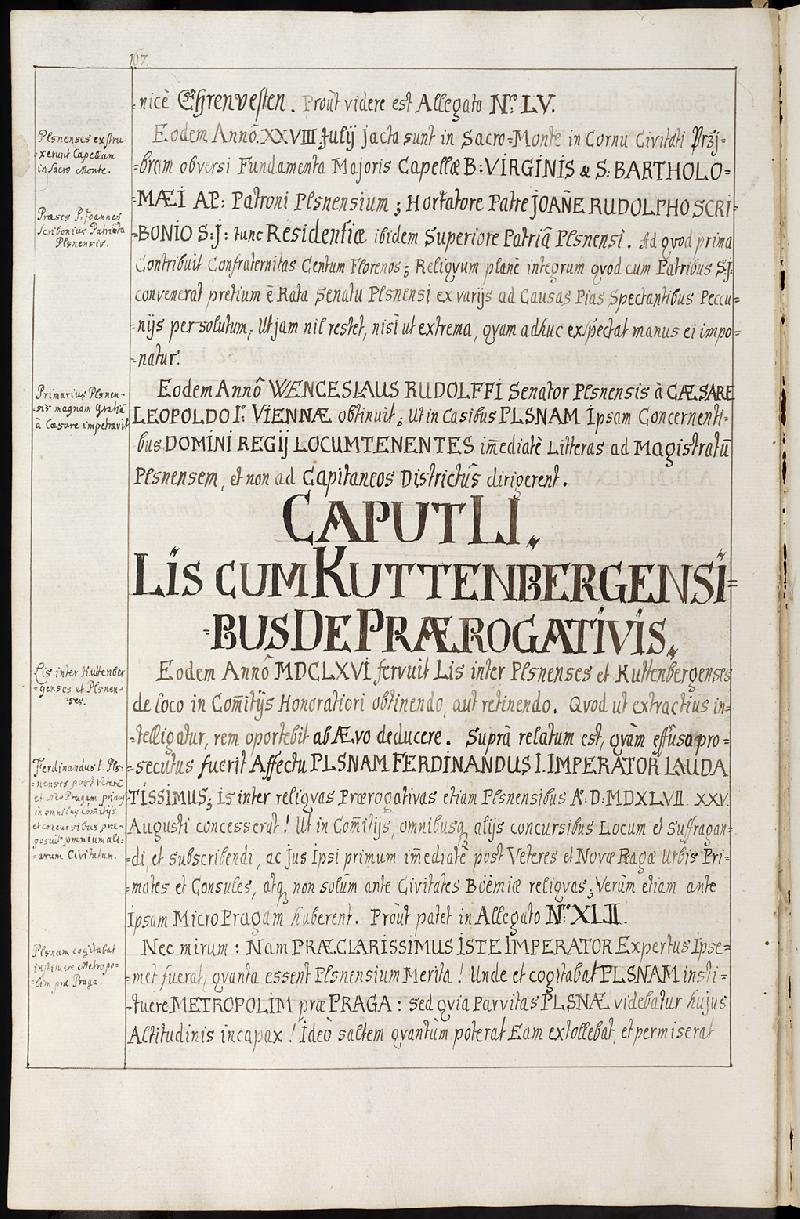 167
-nicè Ehrenvesten. Proùt videre est Allegato No. LV.
Plsnenses extru-
xerunt Capellam
in Sacro Monte.
Eodem Annô. XXVIII Julij jacta sunt in Sacro-Monte in Cornu Civitati Przj-
-bram obversi Fundamenta Majoris Capellæ B: VIRGINIS & S: BARTHOLO-
Præses P. Joannes
Scribonius Patriota
Plsnensis.
-MÆI AP: Patroni Plsnensium; Hortatore Patre JOAÑE RUDOLPHO SCRI-
-BONIO S:J: tunc Residentiæ ibidem Superiore Patriâ Plsnensi. Ad qvod prima
Contribuit Confraternitas Centum Florenos; Religvum planè integrum qvod cum Patribus S.J.
convenerat pretium è Rata Senatu Plsnensi ex varijs ad Causas Pias Spectantibus Peccu-
-nijs persolutum; Ut jam nil restet, nisi ut extrema, qvam adhuc exspectat manus ei impo-
-natur.
Primarius Plsnen-
sis magnam gratiã
à Cæsare impetravit
Eodem Annô WENCESLAUS RUDOLFFI Senator Plsnensis à CÆSARE
LEOPOLDO I. VIENNÆ obtinuit; Ut in Casibus PLSNAM Ipsam Concernenti-
bus DOMINI REGIJ LOCUMTENENTES im̃ediatè Litteras ad Magistratũ
Plsnensem, et non ad Capitaneos Districtûs dirigerent.
CAPUT LI.
LIS CUM KUTTENBERGENSI-
-BUS DE PRÆROGATIVIS.
Lis inter Kuttenber
-genses et Plsnen-
ses.
Eodem Annô MDCLXVI fervuit Lis inter Plsnenses et Kuttenbergenses
de loco in Com̃itijs Honoratiori obtinendo, aut retinendo. Qvod ut extractius in-
-telligatur, rem oportebit ab Ævo deducere. Suprà relatum est, qvàm effusa pro-
Ferdinandus I. Pls-
nenses post Veterẽ
et Novã Pragam primos
in omnibus Comitijs
et concursibus præ-
posuit omnium ali-
arum Civitatum.
-secutus fuerit Affectu PLSNAM FERDINANDUS I. IMPERATOR LAUDA
TISSIMUS; is inter religvas Prærogativas etiam Plsnensibus A. D. MDXLVII XXV.
Augusti concesserat! Ut in Com̃itijs, omnibusq; alijs concursibus Locum et Suffragan-
di, et subscribendi, ac jus Ipsi primum im̃ediatè post Veteres et Novæ Pragæ Urbis Pri-
mates et Consules, atq; non solùm ante Civitates Böemiæ religvas; Verùm etiam ante
Ipsam Micro Pragam haberent. Proùt patet in Allegato No. XLII.
Plsnam cogitabat
instituere Metropo-
lim præ Praga
Nec mirum: Nam PRÆCLARISSIMUS ISTE IMPERATOR Expertus Ipse-
-met fuerat, qvanta essent Plsnensium Merita! Unde et cogitabat PLSNAM insti-
-tuere METROPOLIM præ PRAGA: sed qvia Parvitas PLSNÆ videbatur hujus
Altitudinis incapax! Ideò saltem qvantum poterat Eam extollebat, et permiserat